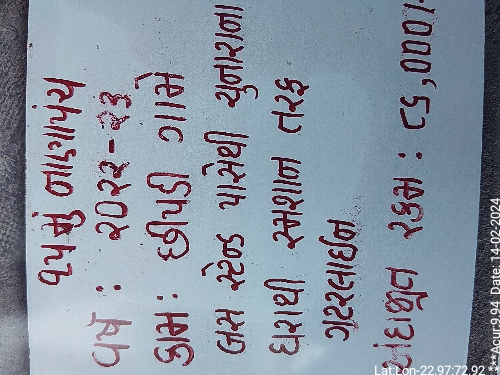 ૧૫મું નાણાપંચ
વર્ષ : ૨૦૨૨-૨૩
કામ : છીપડી ગામે
બસ સ્ટેન્ડ પાસેથી ચુનારાના
ઘરાથી સ્મશાન તરફ
ગટરલાઈન
અંદાજીત રકમ : ૮૬,૦૦૦/-
Lat Lon-22.97:72.92
*** Acur:3.94 Date: 14-02-2024